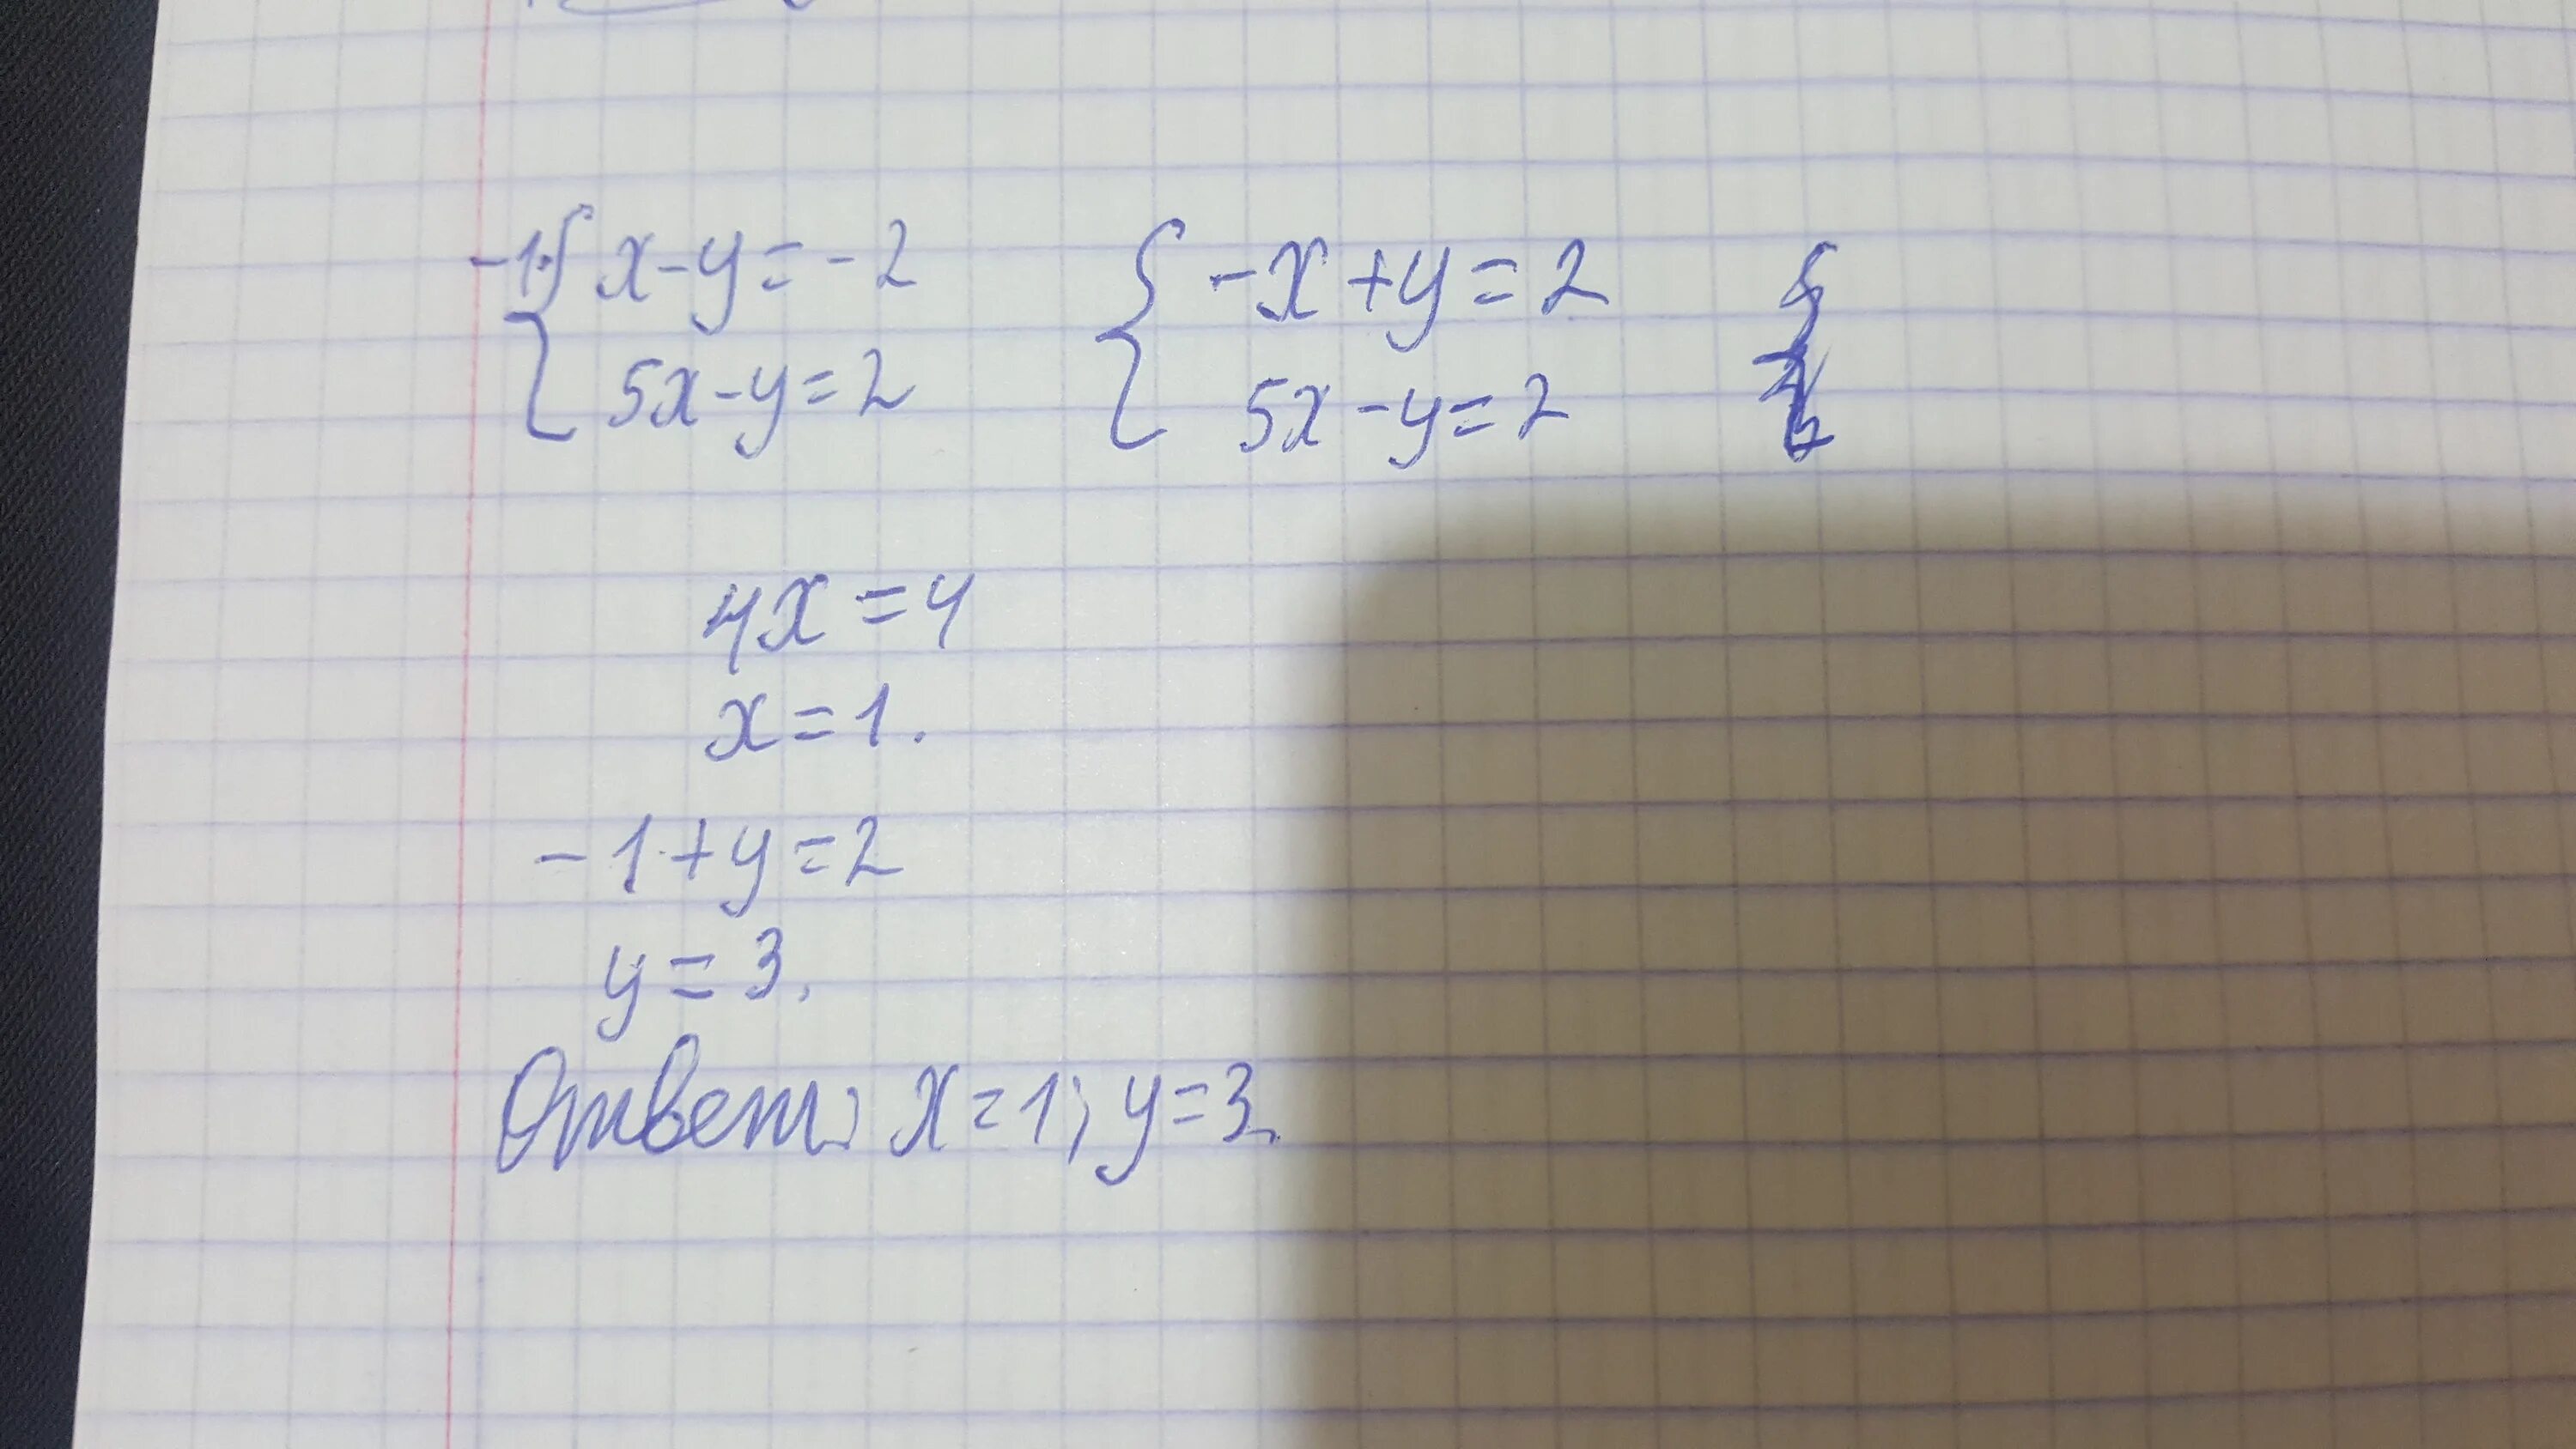 -1·{ x-y=-2 { -x+y=2
5x-y=2 5x-y=2
4x=4
x=1.
-1+y=2
y=3.
Ответ: x=1; y=3.